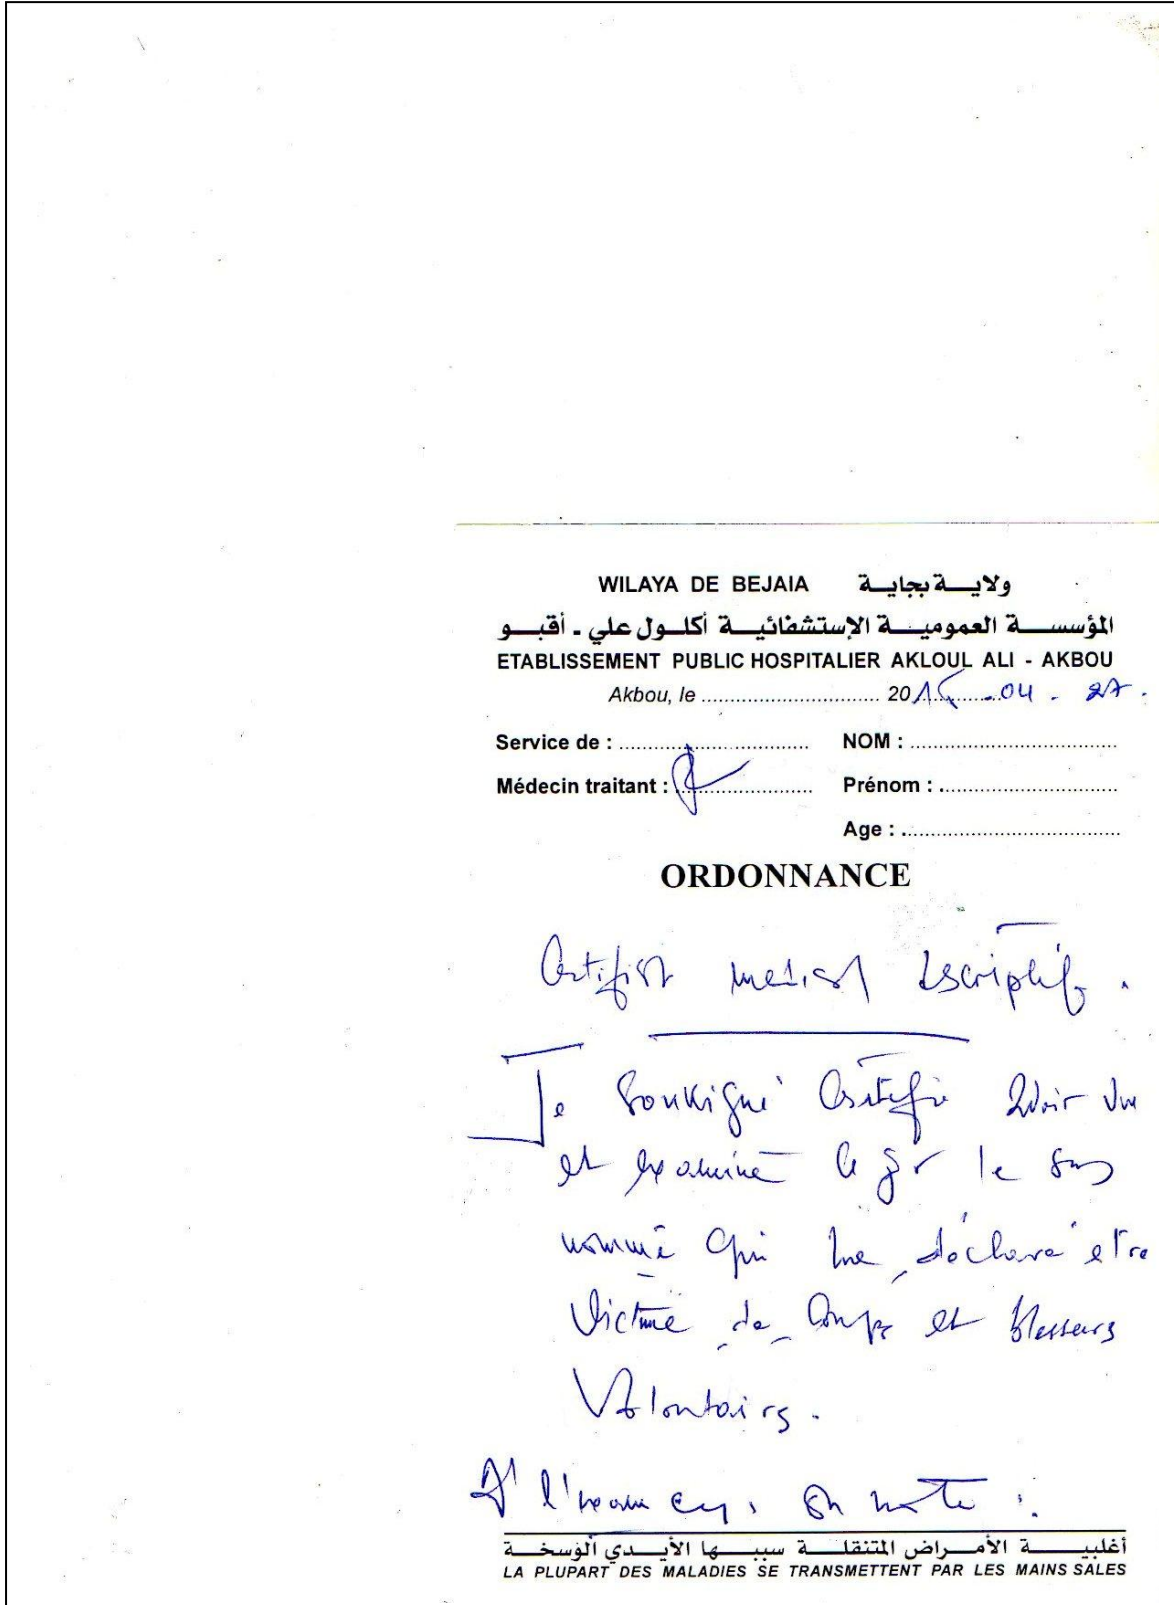 WILAYA DE BEJAIA ولايــة بجايــة
المؤسســة العموميــة الإستشفائيــة أكلــول علي - أقبــو
ETABLISSEMENT PUBLIC HOSPITALIER AKLOUL ALI - AKBOU
Akbou, le .............................. 20 .04 - 27.
Service de : .............................. NOM : ..............................
Médecin traitant : .............................. Prénom : ..............................
Age : ..............................
ORDONNANCE
Certificat medical descriptif.
Je soussigné certifie avoir vu
et examiné le sr le sus
nommé qui me déclare être
victime de coups et blessures
volontaires.
A l'examen on note :
أغلبيــة الأمــراض المتنقلــة سببــها الأيــدي الوسخــة
LA PLUPART DES MALADIES SE TRANSMETTENT PAR LES MAINS SALES